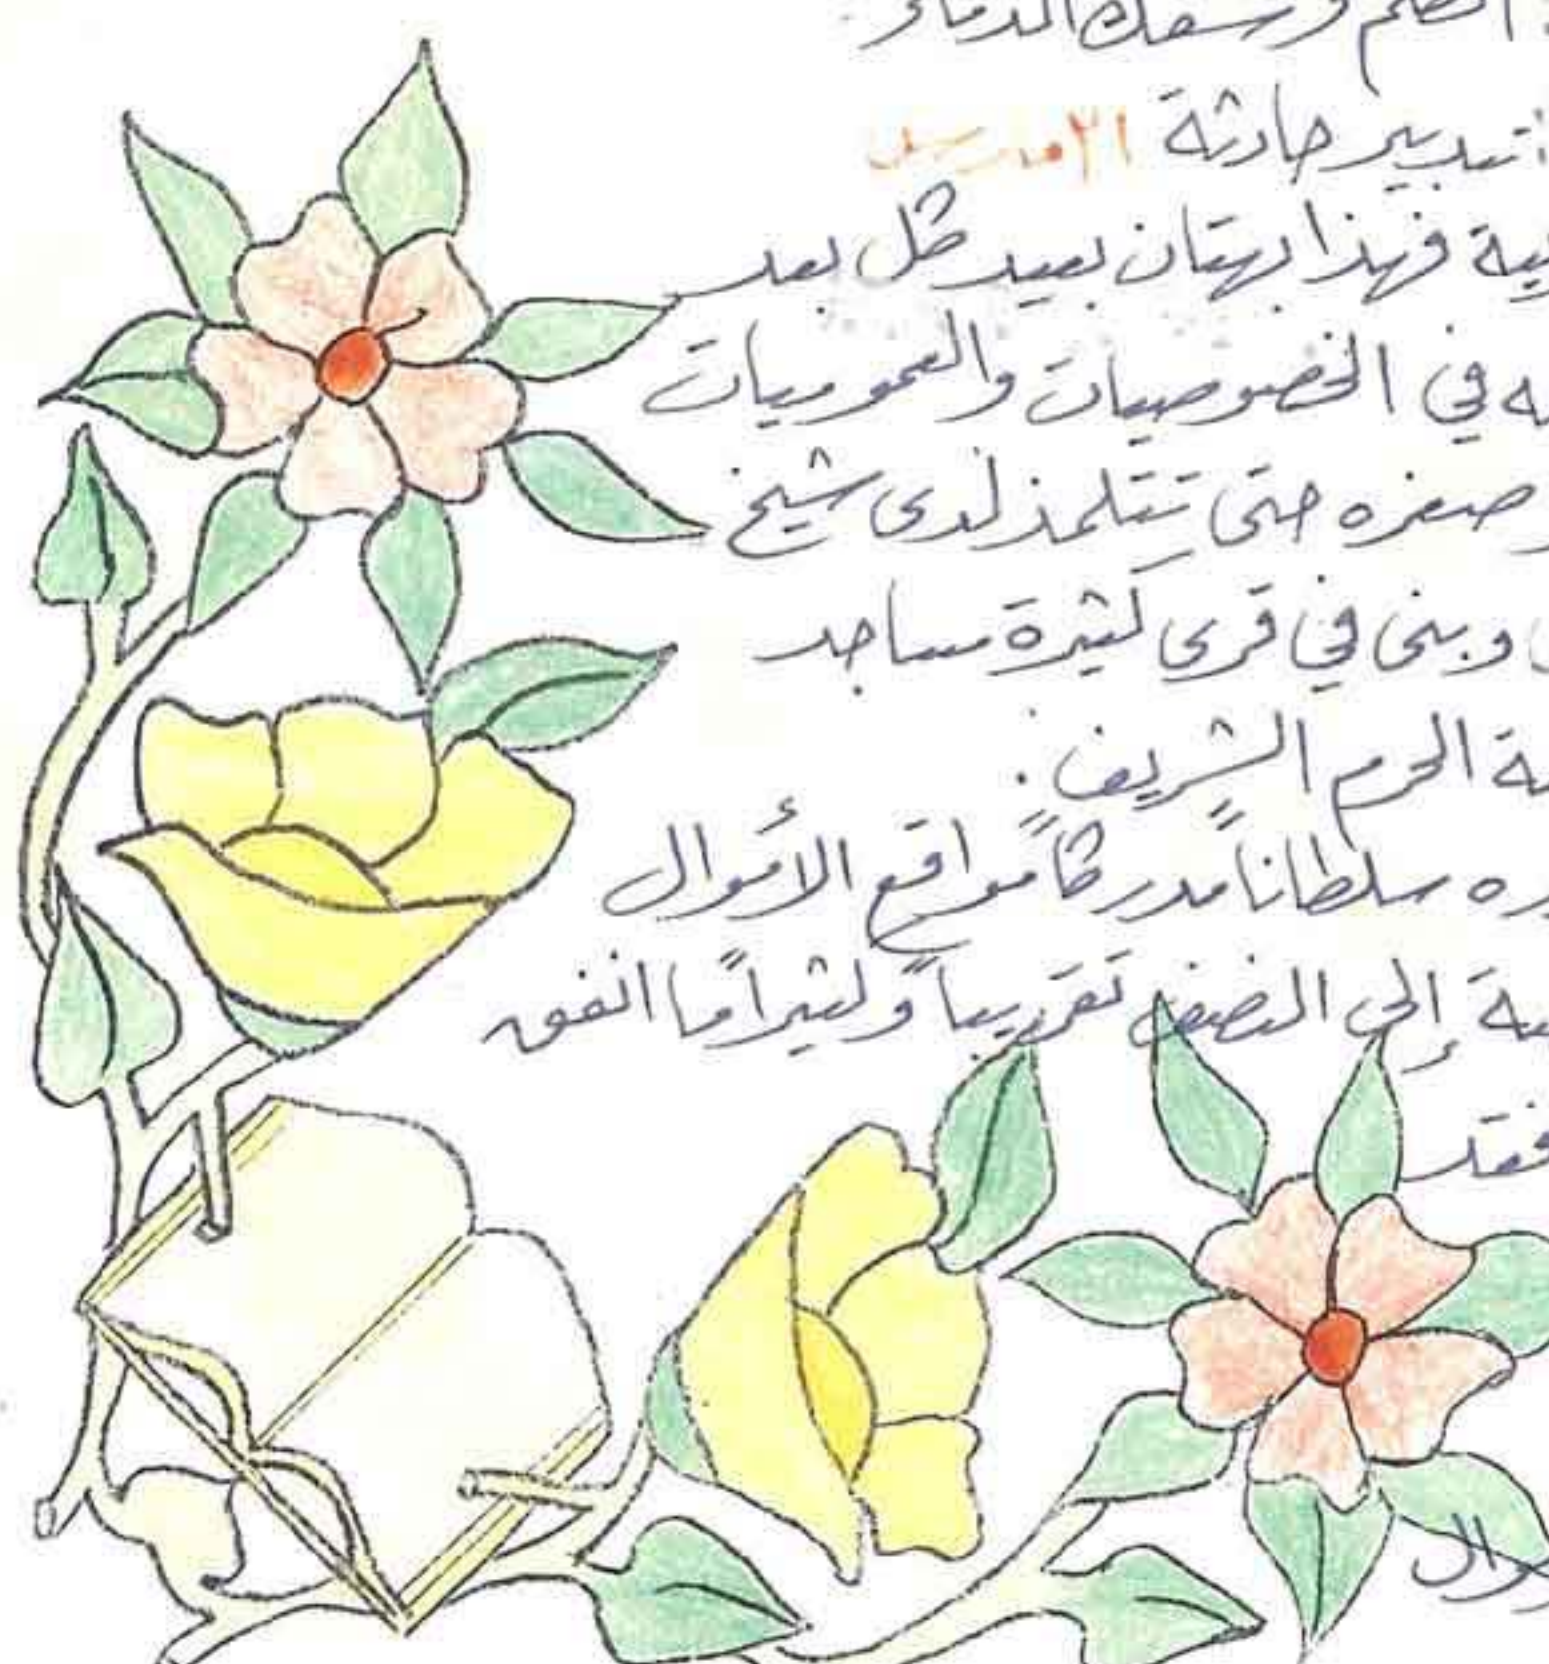 الظلم وسفك الدماء.
تدبير حادثة ٣١ مارس
فهذا بهتان بعيد كل بعد
في الخصوصيات والعموميات
صغره حتى تتلمذ لدى شيخ
وبنى في قرى كثيرة مساجد
الحرم الشريف.
سلطاناً مدركاً مواقع الأموال
إلى النصف تقريباً وكثيراً ما انفق
فقد